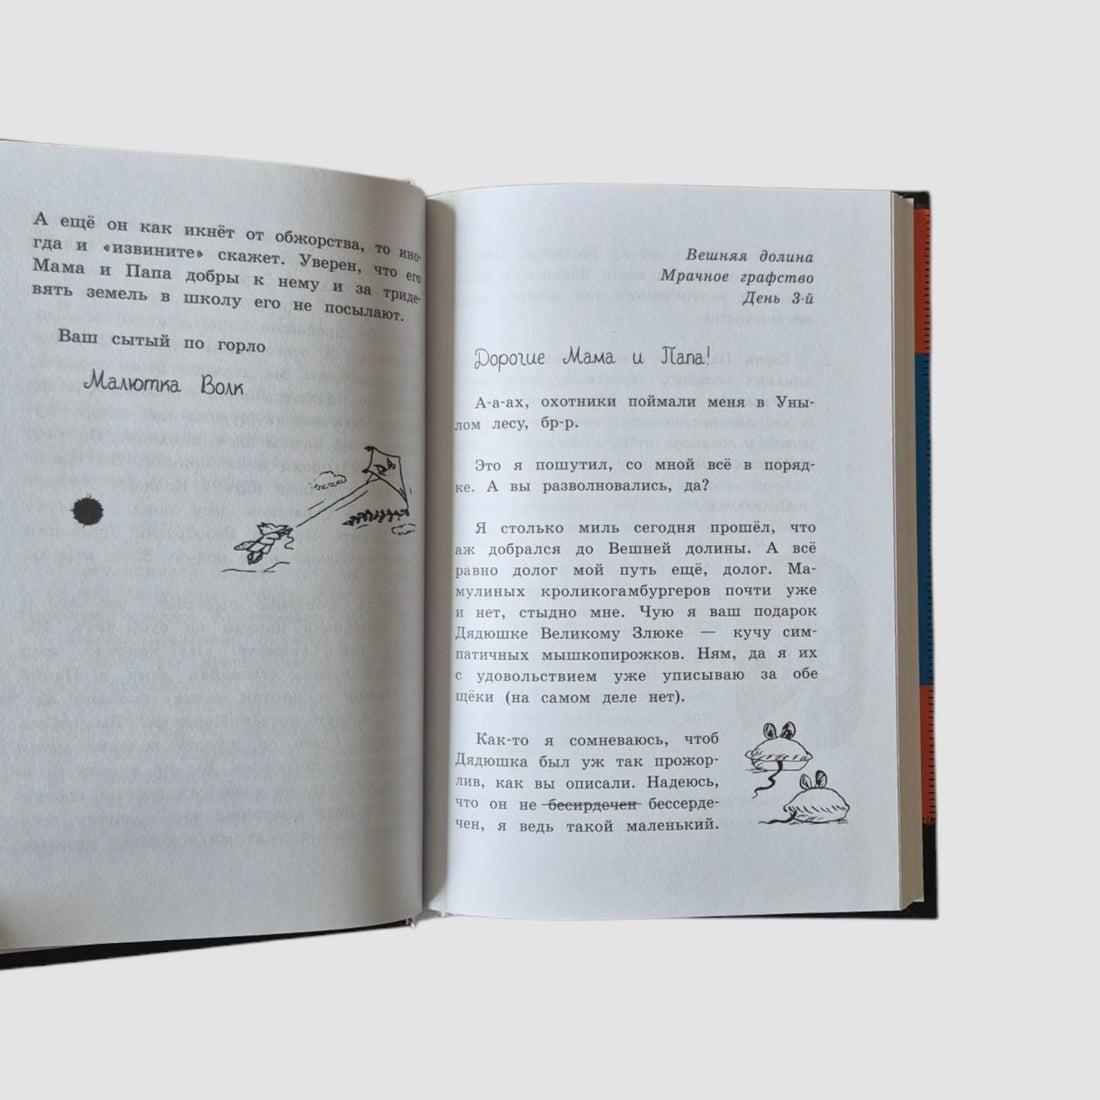 А ещё он как икнёт от обжорства, то ино-
гда и «извините» скажет. Уверен, что его
Мама и Папа добры к нему и за триде-
вять земель в школу его не посылают.
Ваш сытый по горло
Малютка Волк
Вешняя долина
Мрачное графство
День 3-й
Дорогие Мама и Папа!
А-а-ах, охотники поймали меня в Уны-
лом лесу, бр-р.
Это я пошутил, со мной всё в поряд-
ке. А вы разволновались, да?
Я столько миль сегодня прошёл, что
аж добрался до Вешней долины. А всё
равно долог мой путь ещё, долог. Ма-
мулиных кроликогамбургеров почти уже
и нет, стыдно мне. Чую я ваш подарок
Дядюшке Великому Злюке — кучу сим-
патичных мышкопирожков. Ням, да я их
с удовольствием уже уписываю за обе
щёки (на самом деле нет).
Как-то я сомневаюсь, чтоб
Дядюшка был уж так прожор-
лив, как вы описали. Надеюсь,
что он не бесирдечен бессерде-
чен, я ведь такой маленький.